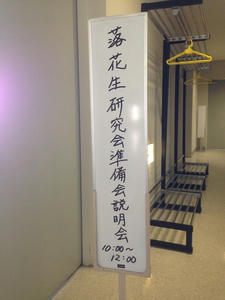 落花生研究会準備会説明会
10:00～
12:00